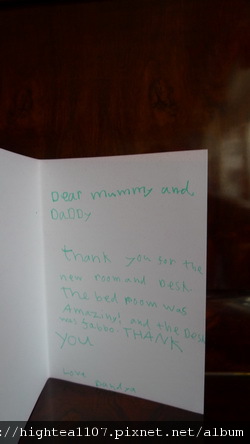 Dear mummy and
DaDDy
thank you for the
new room and Desk
the bed room was
Amazing! and the Desk
was fabbo. THANK
you
Love
http://hightea1107.pixnet.net/album